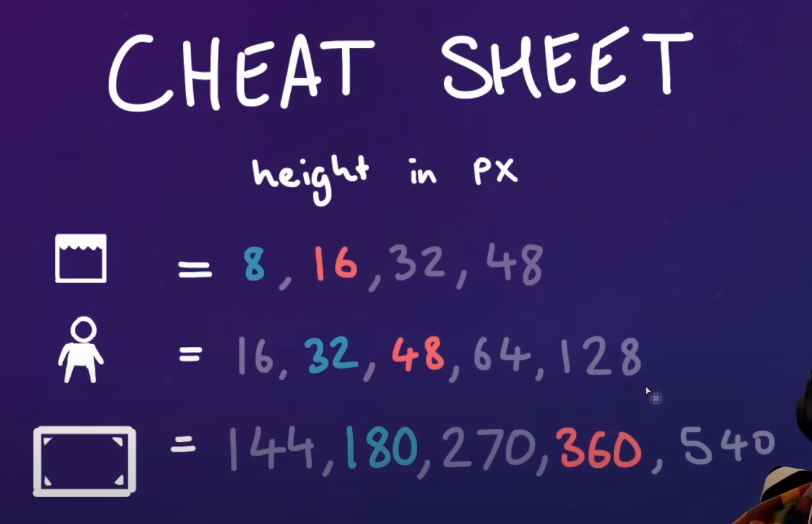 CHEAT SHEET
height in px
= 8, 16, 32, 48
= 16, 32, 48, 64, 128
= 144, 180, 270, 360, 540